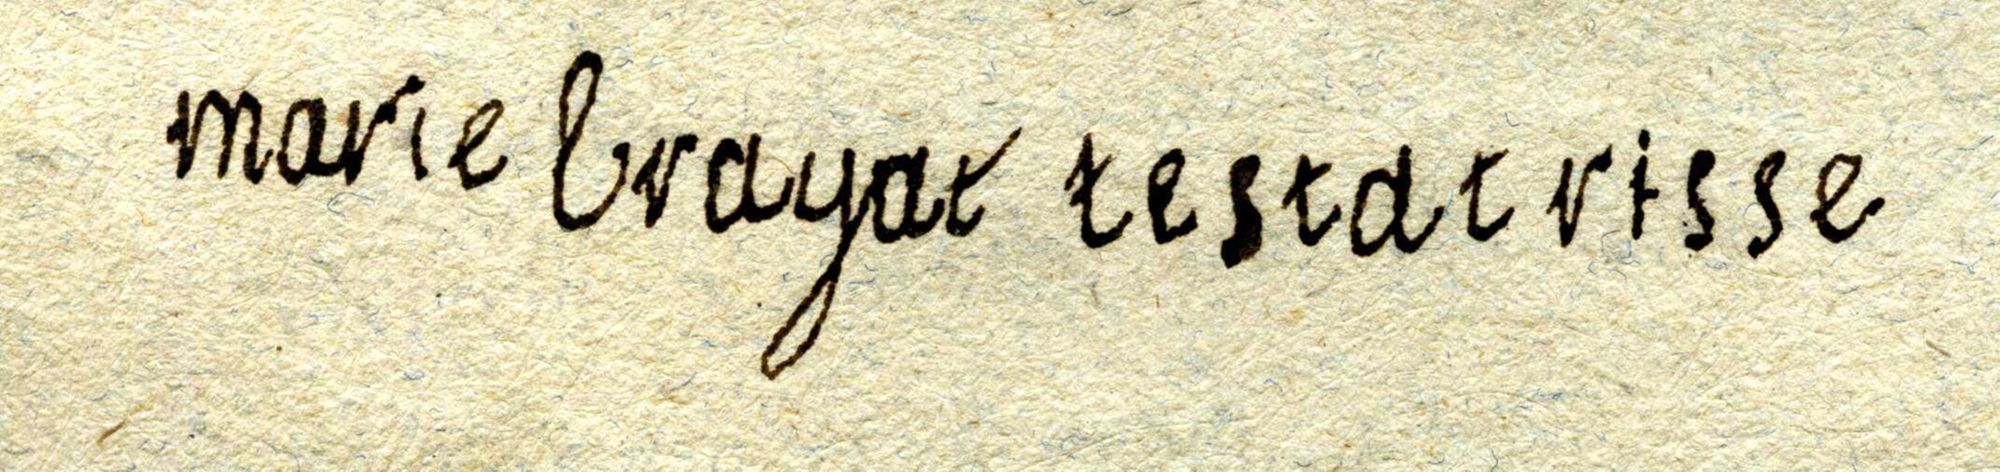 marie brayat testatrisse